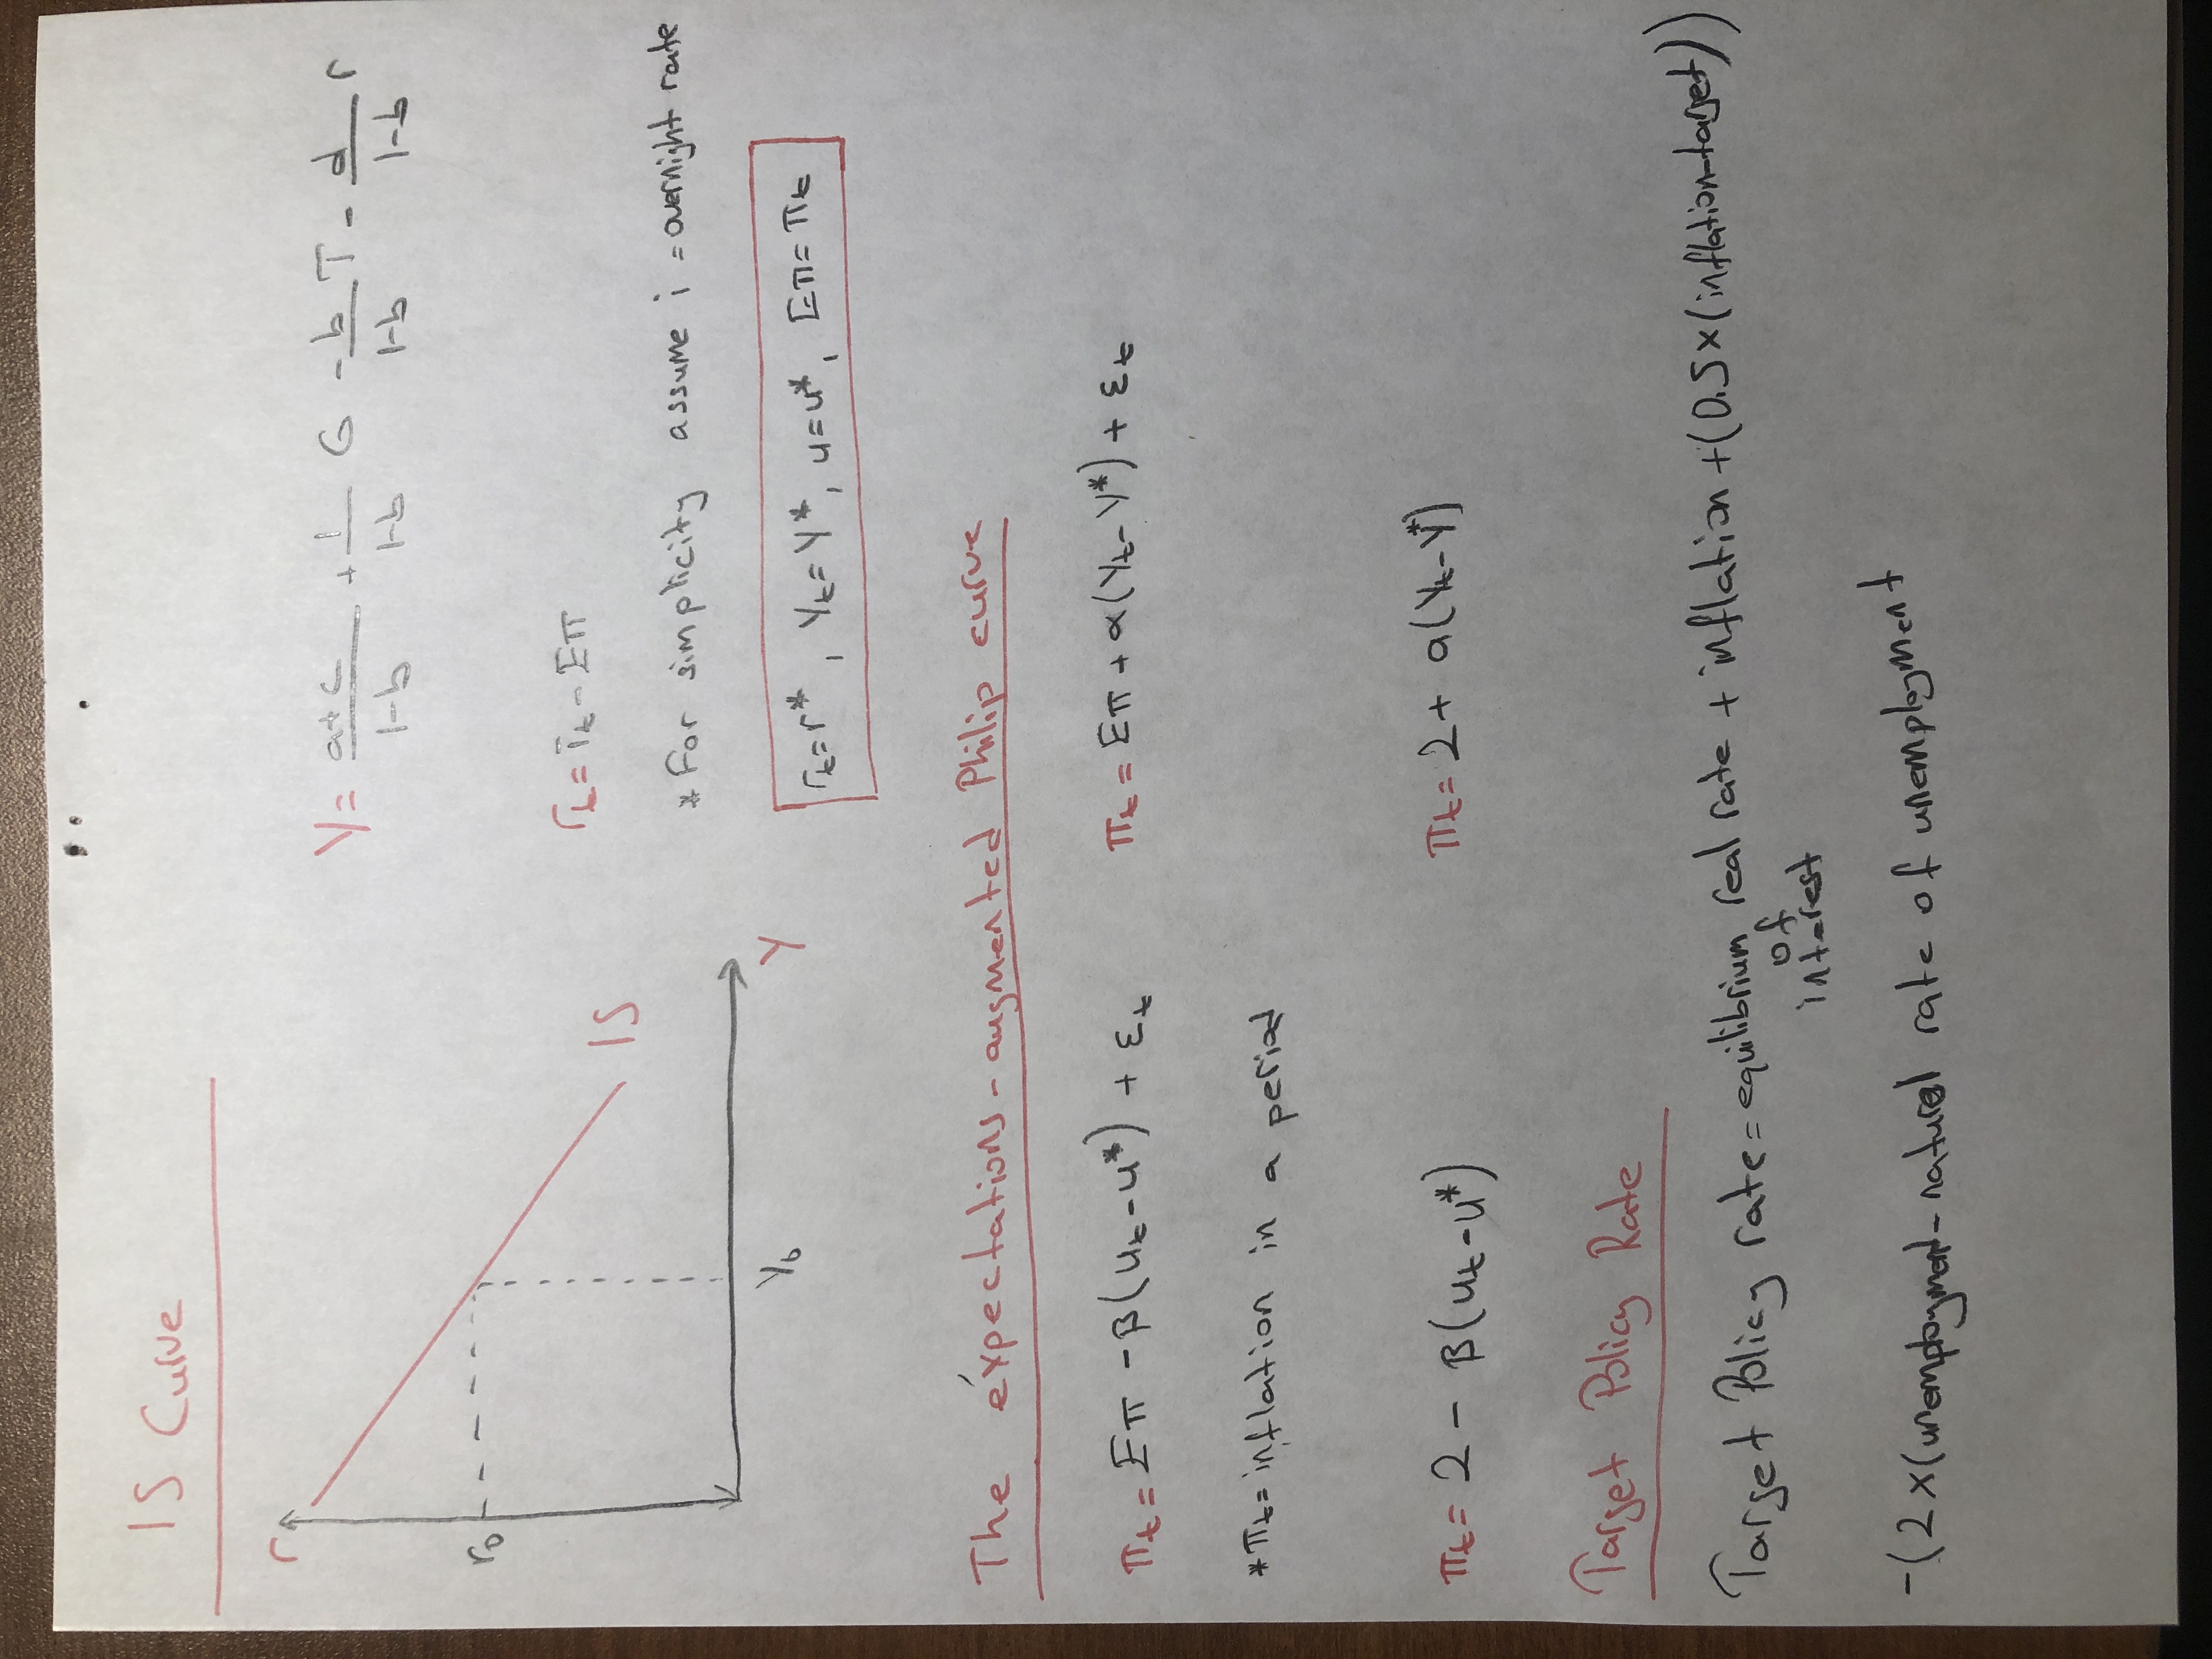 IS Curve
r
Y = a+c/1-b + 1/1-b G - b/1-b T - d/1-b r
r₀
rₜ = iₜ - Eπ
IS
* For simplicity assume i = overnight rate
Y₀
Y
rₜ=r*, Yₜ=Y*, u=u*, Eπ=πₜ
The expectations-augmented Philip curve
πₜ = Eπ - β(uₜ-u*) + εₜ
πₜ = Eπ + α(Yₜ-Y*) + εₜ
*πₜ= inflation in a period
πₜ = 2 - β(uₜ-u*)
πₜ = 2 + a(Yₜ-Y*)
Target Policy Rate
Target Policy rate = equilibrium real rate + inflation + (0.5 x (inflation-target))
of
interest
-(2 x (unemployment - natural rate of unemployment